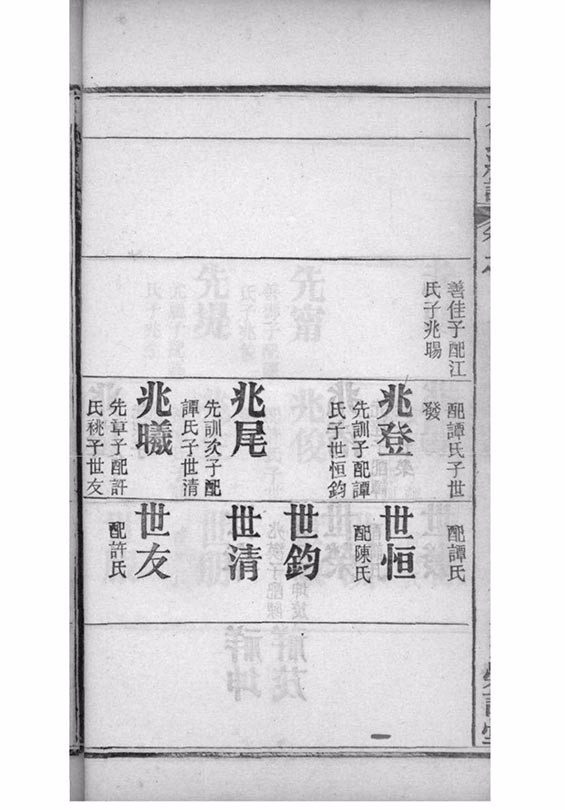 善佳子配江
氏子兆暘
配譚氏子世
發
兆登
先訓子配譚
氏子世恒鈞
兆尾
先訓次子配
譚氏子世清
兆曦
先章子配許
氏祧子世友
配譚氏
世恒
配陳氏
世鈞
世清
世友
配許氏